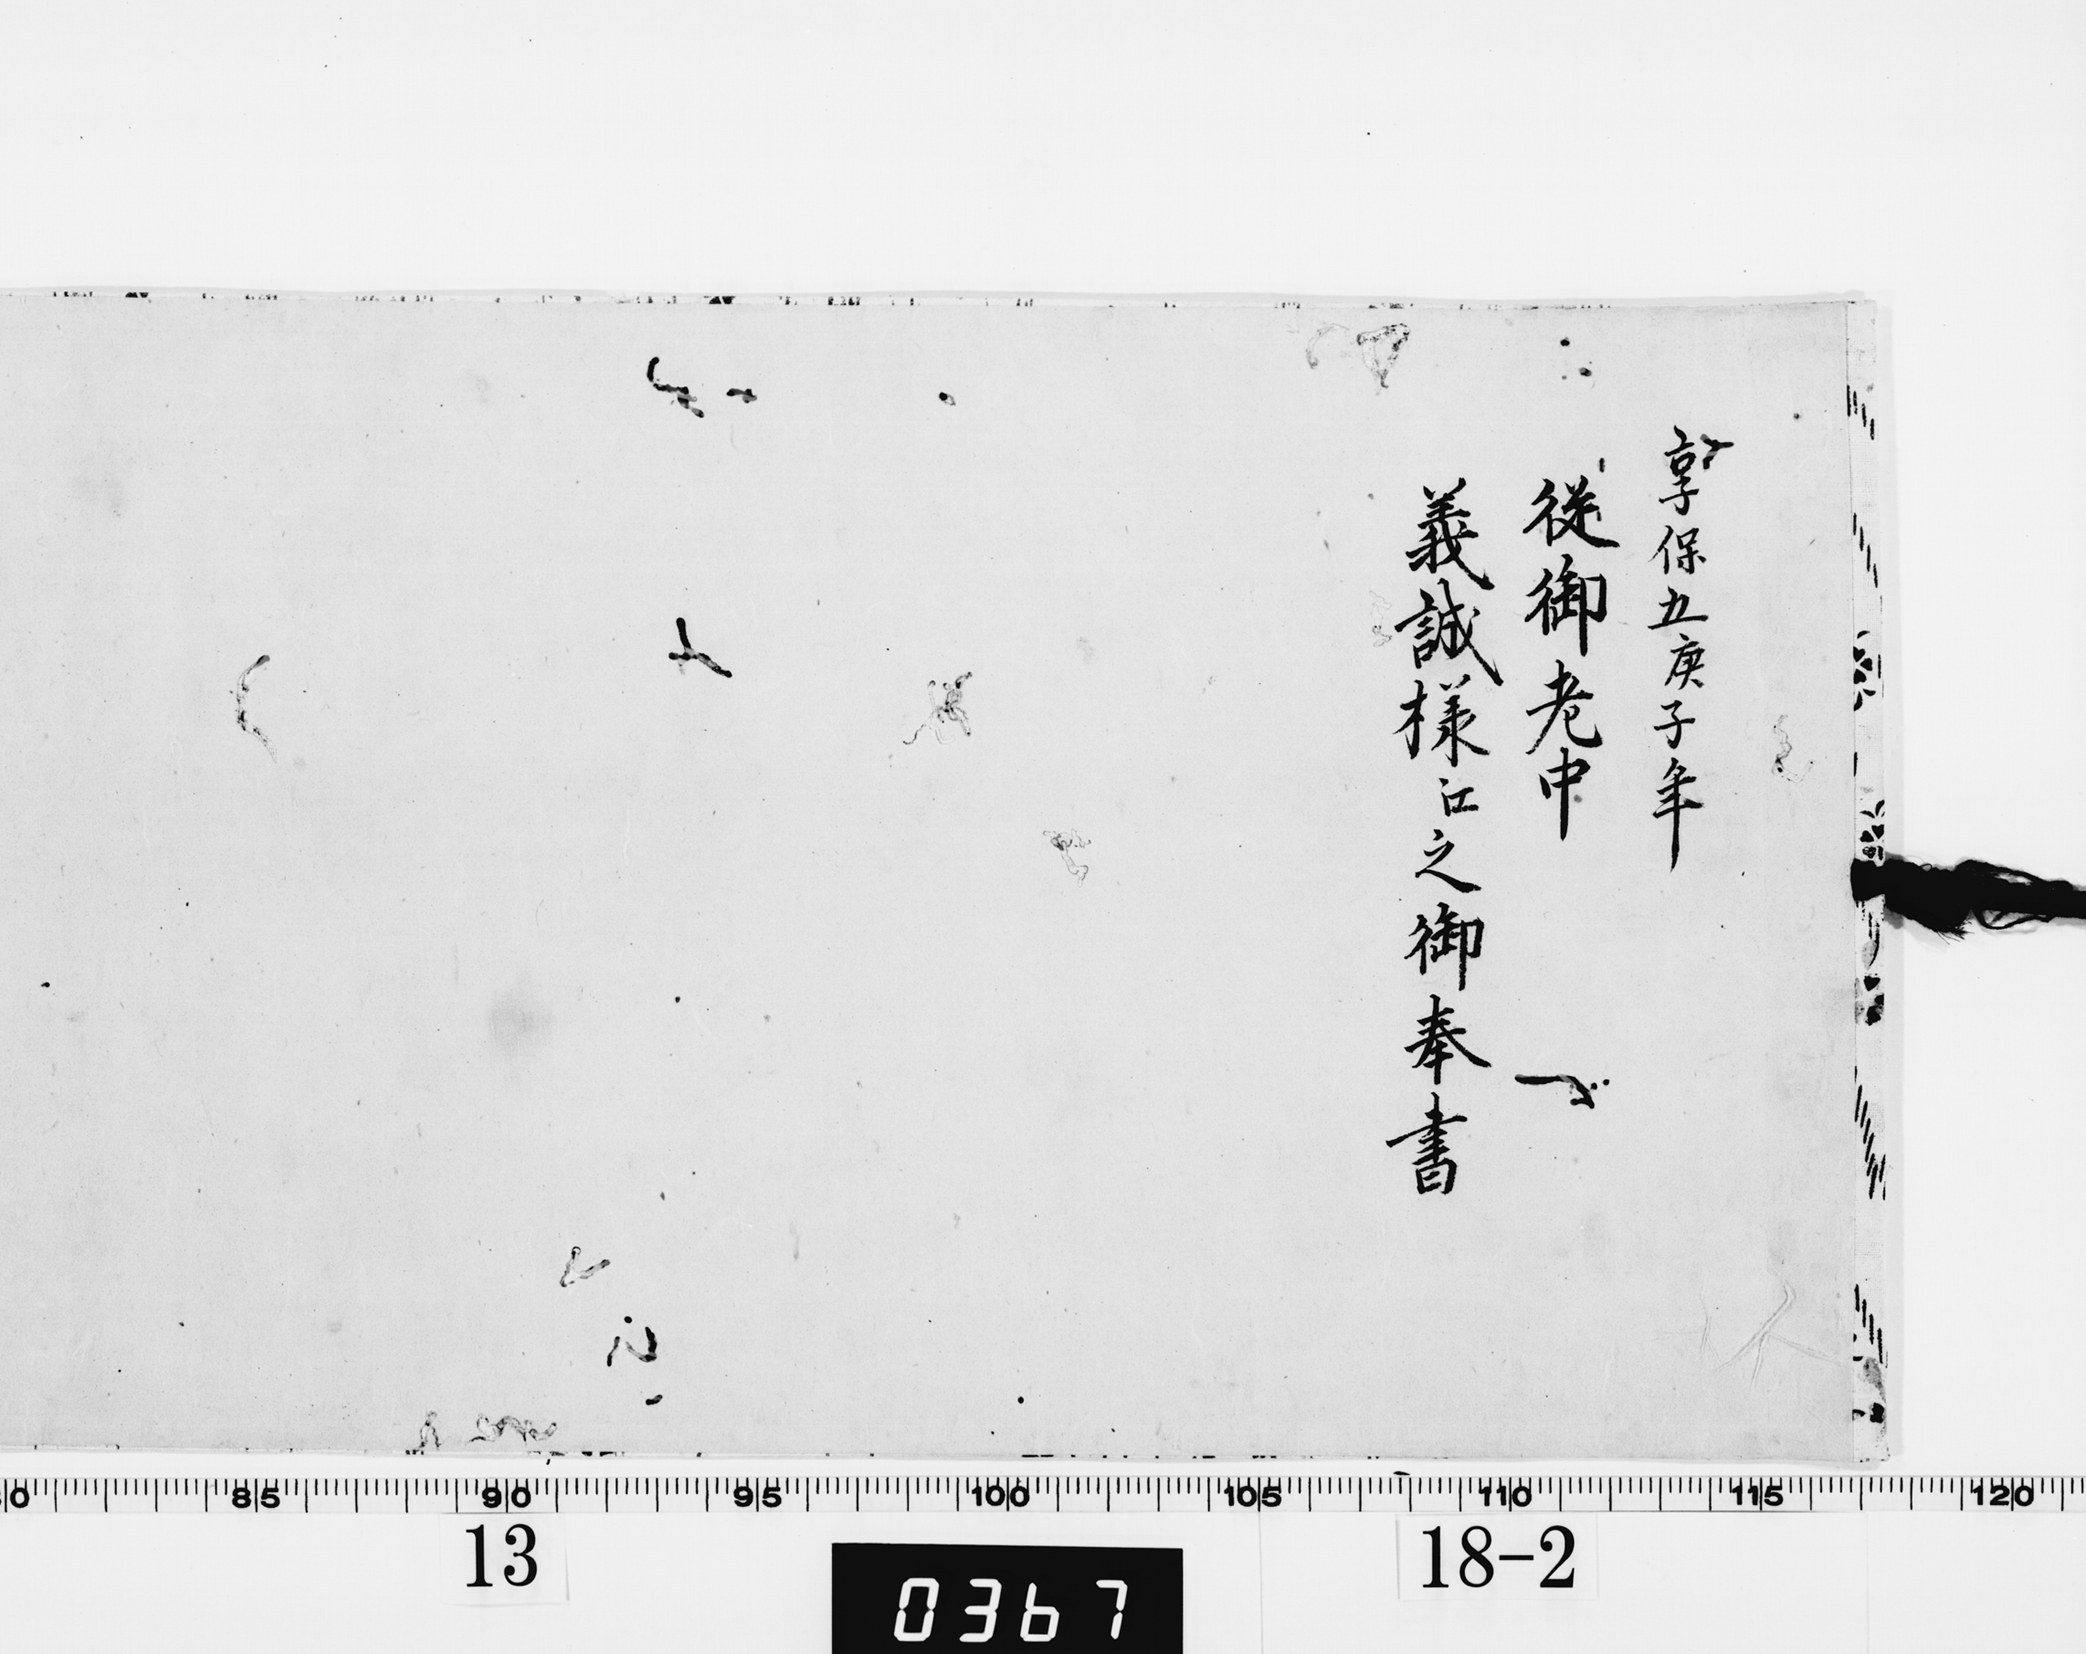 享保五庚子年
従御老中
義誠様江之御奉書
80 85 90 95 100 105 110 115 120
13
18-2
0367